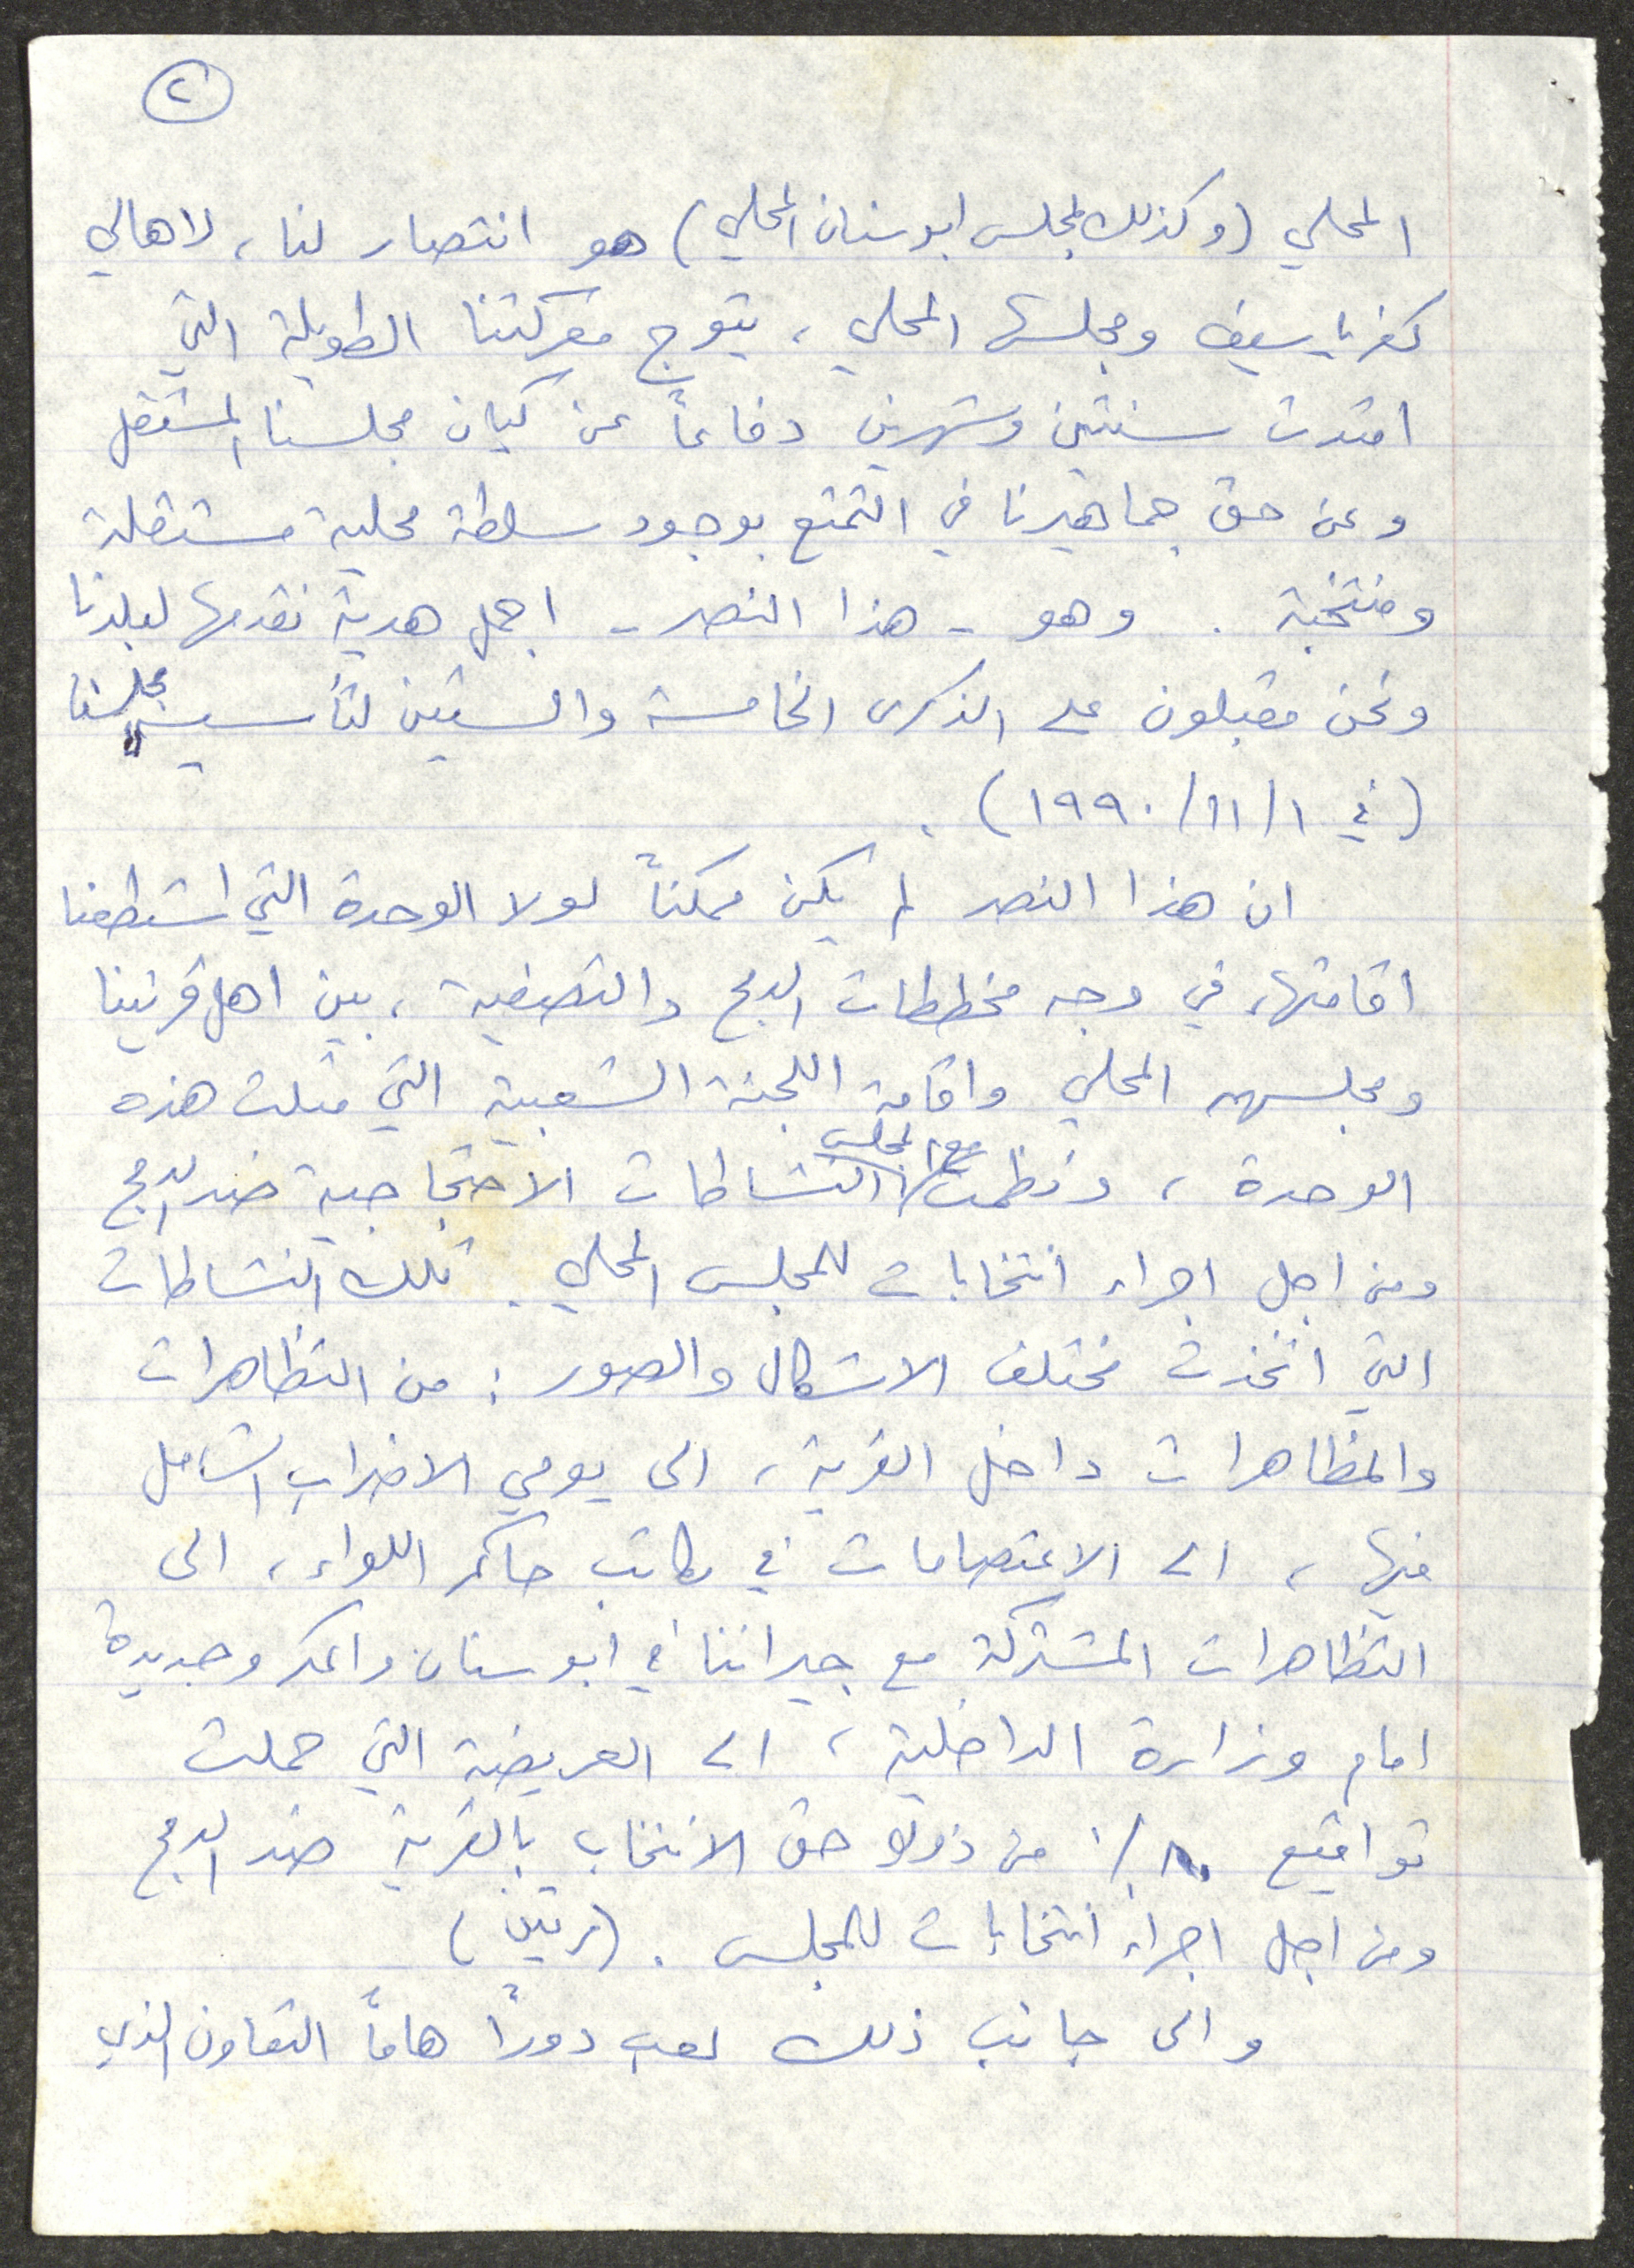 ٢
المحلي (وكذلك مجلس ابوسنان المحلي) هو انتصار لنا، لاهالي
كفرياسيف ومجلسها المحلي، يتوج معركتنا الطويلة التي
امتدت سنتين وشهرين دفاعاً عن كيان مجلسنا المستقل
وعن حق جماهيرنا في التمتع بوجود سلطة محلية مستقلة
ومنتخبة. وهو - هذا النصر - اجمل هدية نقدمها لبلدنا
ونحن مقبلون على الذكرى الخامسة والستين لتأسيس مجلسنا
(في ١/١١/١٩٩٠).
ان هذا النصر لم يكن ممكناً لولا الوحدة التي استطعنا
اقامتها، في وجه مخططات الدمج والتصفية، بين اهل قريتنا
ومجلسهم المحلي واقامة اللجنة الشعبية التي مثلت هذه
الوحدة، ونظمت مع المجلس النشاطات الاحتجاجية ضد الدمج
ومن اجل اجراء انتخابات للمجلس المحلي. تلك النشاطات
التي اتخذت مختلف الاشكال والصور: من التظاهرات
والمظاهرات داخل القرية، الى يومي الاضراب الشامل
فيها، الى الاعتصامات في مكاتب حاكم اللواء، الى
التظاهرات المشتركة مع جيراننا في ابوسنان والمكر وجديدة
امام وزارة الداخلية، الى العريضة التي حملت
تواقيع ٨٠٪ من ذوي حق الانتخاب بالقرية ضد الدمج
ومن اجل اجراء انتخابات للمجلس. (مرتين)
والى جانب ذلك لعب دوراً هاماً التعاون الذي